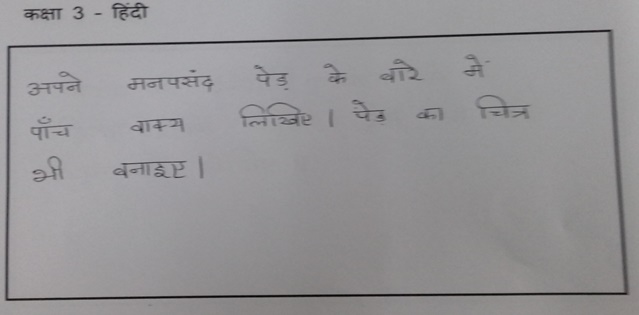 कक्षा 3 - हिंदी
अपने मनपसंद पेड़ के बारे में
पाँच वाक्य लिखिए। पेड़ का चित्र
भी बनाइए।